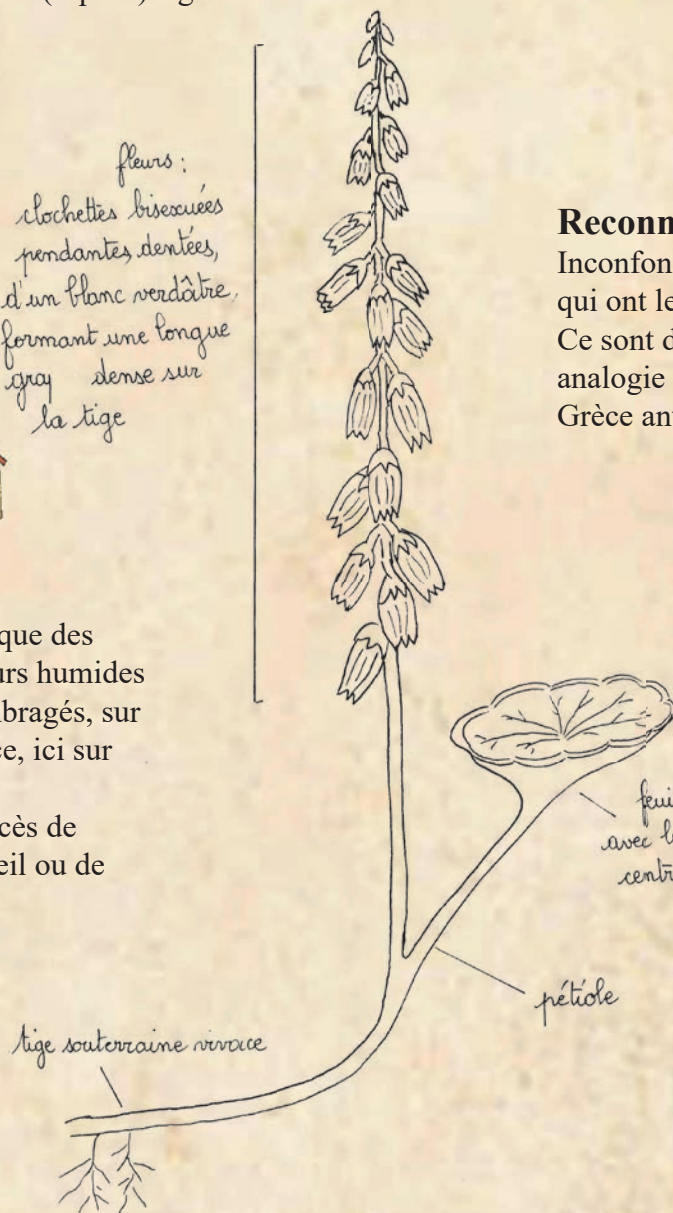 fleurs :
clochettes bisexuées
pendantes, dentées,
d'un blanc verdâtre,
formant une longue
dense sur
la tige
Reconn
Inconfon
qui ont le
Ce sont d
analogie
Grèce ant
que des
urs humides
bragés, sur
ce, ici sur
cès de
eil ou de
feui
avec l
centr
pétiole
tige souterraine vivace